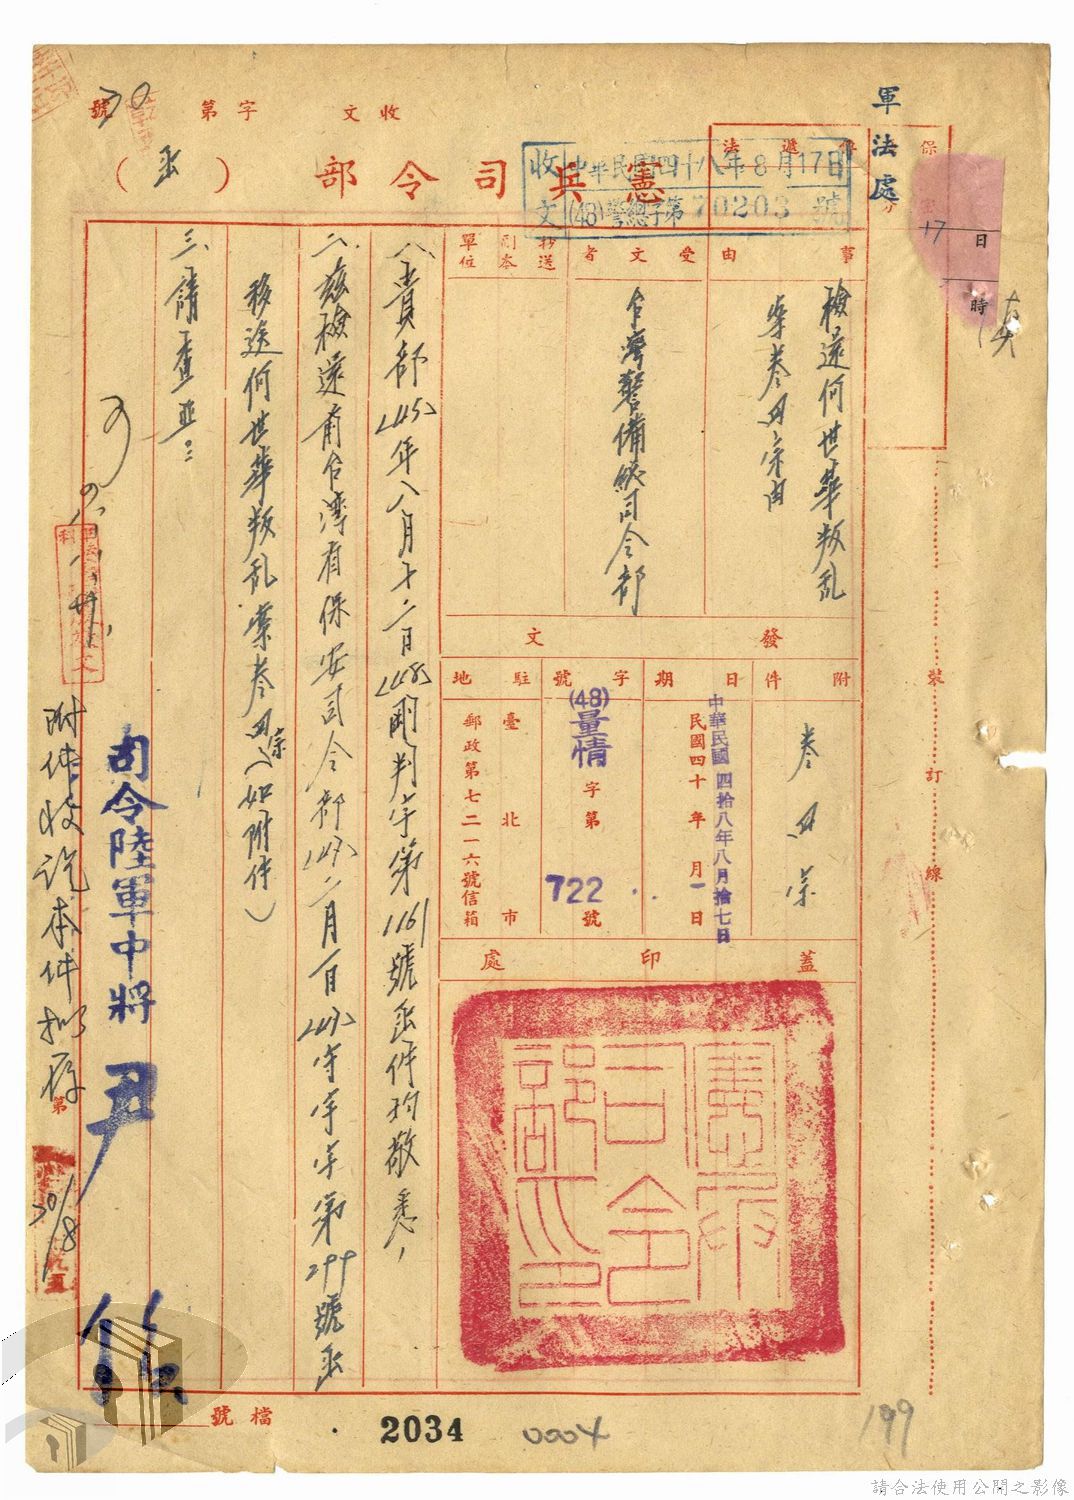 收文 字第 號
憲兵司令部（函）
軍法處
保密
17日
時
收文
中華民國四十八年8月17日
(48)警總字第70203號
事由
檢還何世華叛乱
案卷四宗由
受文者
台灣警備總司令部
抄送副本單位
發文
附件
卷四宗
日期
中華民國四拾八年八月拾七日
民國四十年月一日
字號
(48)量情
字第
722號
駐地
臺北市
郵政第七二一六號信箱
蓋印處
憲兵司令部之印
貴部
年八月十二日
判字第1161號函件均敬悉，
二、茲檢還前台灣省保安司令部
字第299號函
移送何世華叛乱案卷四宗（如附件）
三、請查照
司令陸軍中將 尹
附件收訖本件擬存
30/8
裝訂線
檔號
2034
0004
199
請合法使用公開之影像